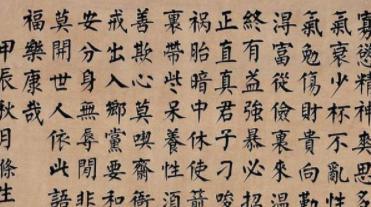 寡慾精神爽思多
氣衰少杯不亂性
氣勉傷財貴向勤
淂富從儉裏來溫
終有益強暴必招
正直真君子刁唆
祸胎暗中休使箭
裏帶些呆養性須
善欺心莫喫齋衙
戒出入鄉黨要和
安分身無辱閒非
莫開世人依此語
福樂康哉
甲辰秋月條生